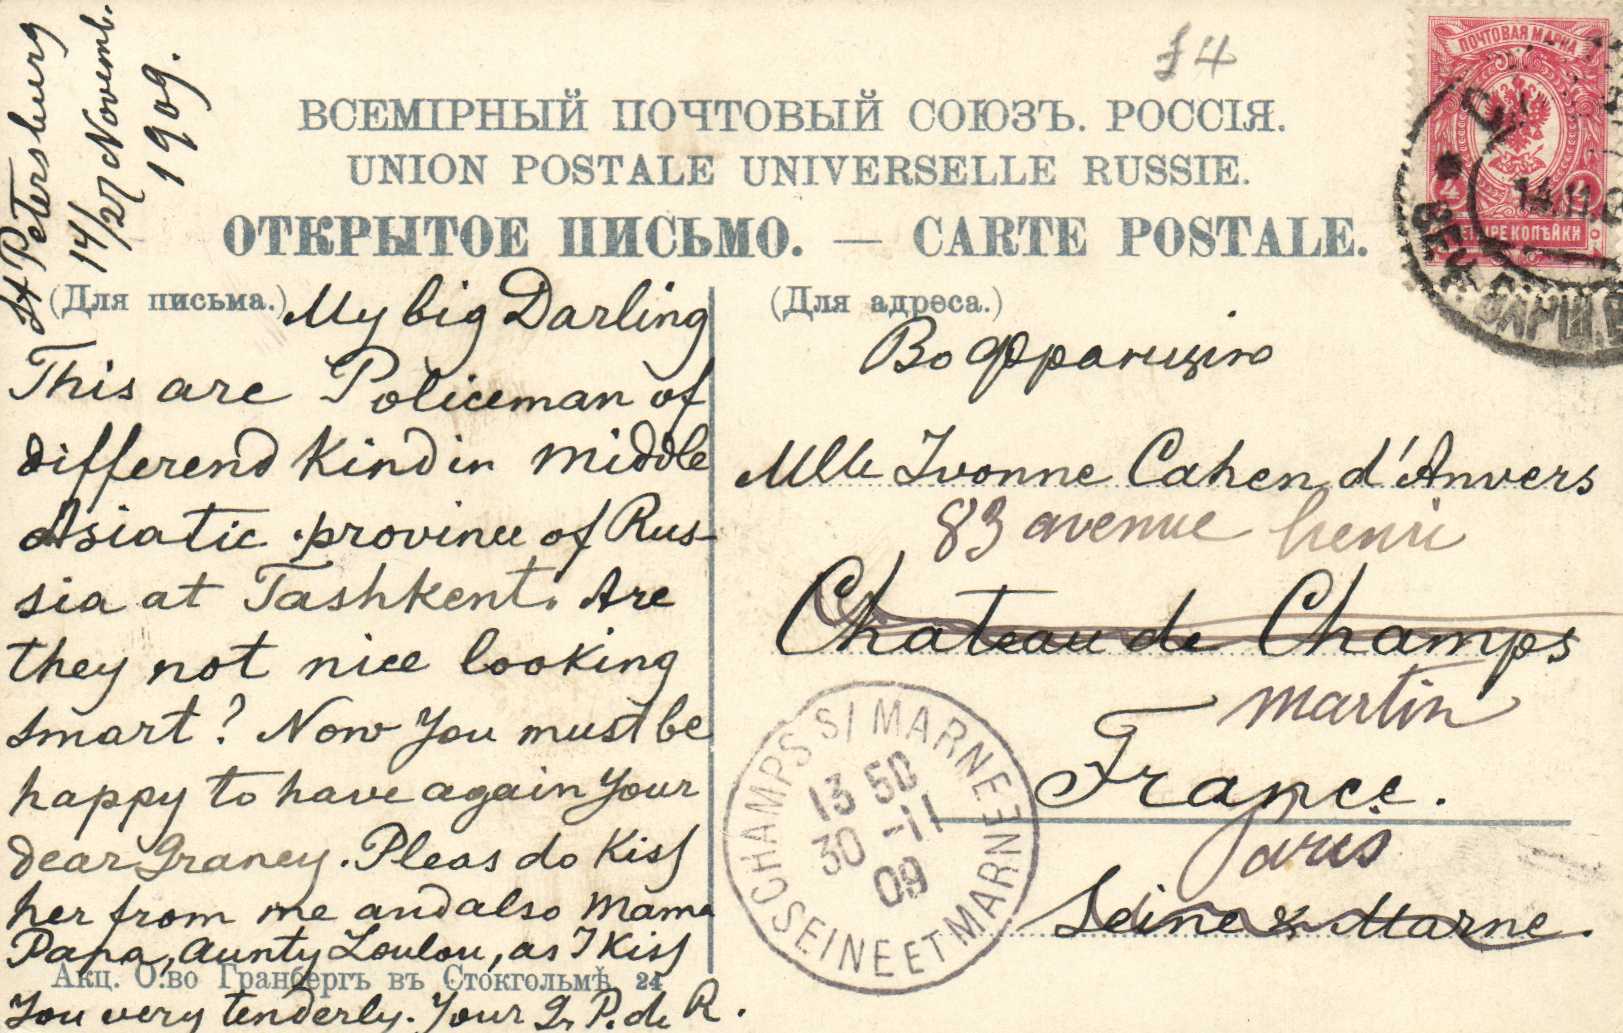 St Petersburg
14/27 Novemb.
1909.
£4
ВСЕМІРНЫЙ ПОЧТОВЫЙ СОЮЗЪ. РОССІЯ.
UNION POSTALE UNIVERSELLE RUSSIE.
ОТКРЫТОЕ ПИСЬМО. — CARTE POSTALE.
(Для письма.)
My big Darling
This are Policeman of
differend Kind in middle
Asiatic province of Rus-
sia at Tashkent. Are
they not nice looking
smart? Now You must be
happy to have again Your
dear Graney. Pleas do Kiss
her from me and also Mama
Papa, Aunty Loulou, as I Kiss
You very tenderly. Your Gr P. de R.
Акц. О.во Гранбергъ въ Стокгольмѣ. 24
(Для адреса.)
Во Францію
Mlle Ivonne Cahen d'Anvers
83 avenue henri
Chateau de Champs
martin
France.
Paris
Seine & Marne.
ПОЧТОВАЯ МАРКА
4
КОПѢЙКИ
14.11.
CHAMPS S/ MARNE
13 50
30 -11
09
SEINE ET MARNE